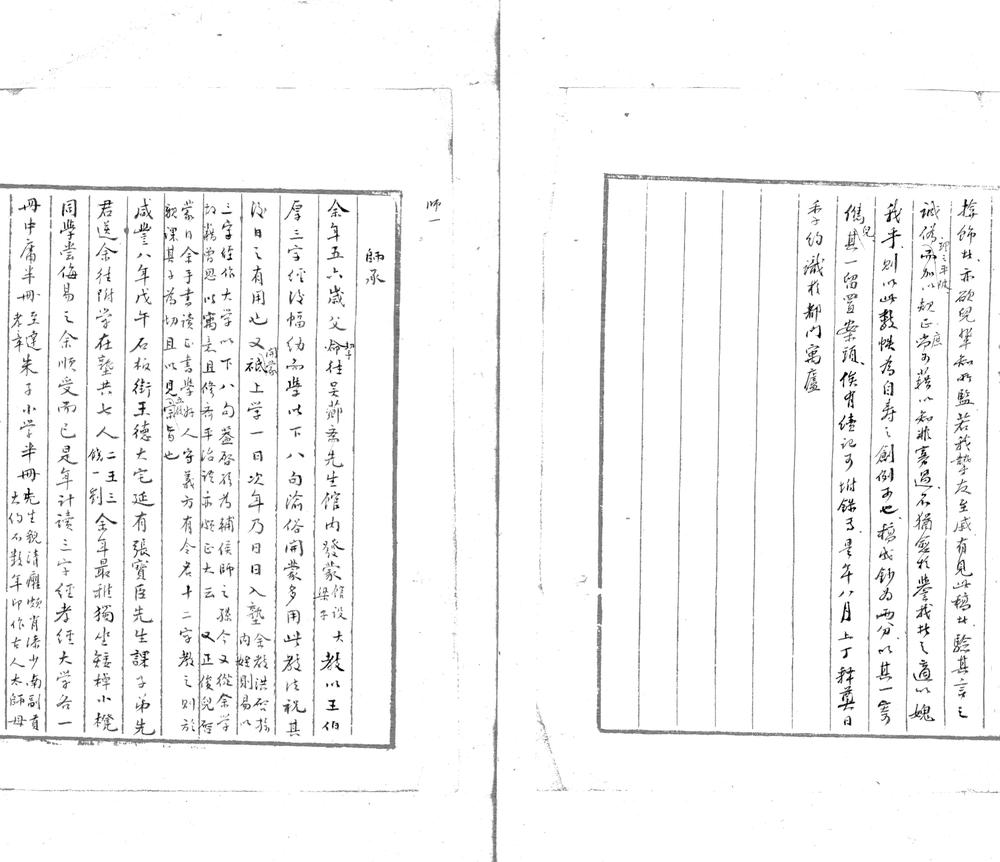 掠飾者亦欲兒輩知所監若我摯友至戚有見此稿者驗其言之
誠偽而加以規正尚可藉以知非喜過不獨愈於譽我者之適以媿
我乎則以此數帙為自壽之創例可也稿成鈔為兩分以其一寄
儁兒其一留置案頭俟有續記可坿錄焉是年八月上丁釋奠日
季約識於都門寓廬
師一
師承
余年五六歲父挈往吳薌亝先生館內發蒙館設大梁子教以王伯
厚三字經後幅幼而學以下八句渝俗開蒙多用此教法祝其
後日之有用也又開蒙祗上學一日次年乃日日入塾余教洪
三字經作大學以下八句葢 為輔侯師之孫今又從余學
故 曾思以 且修齊平治語亦頗正大云又正俊兒啓
蒙日余手書讀正書學好人字義方有令名十二字教之則於
課其子為切且以見宗旨也
咸豐八年戊午石板街王德大宅延有張寶臣先生課子弟先
君送余往附學在塾共七人二王三劉一余年最稚獨坐矮棹小櫈
同學嘗侮易之余順受而已是年計讀三字經孝經大學各一
冊中庸半冊至達孝章朱子小學半冊先生貌清癯頗肖涂少南副有大約不數年即作古人太師母